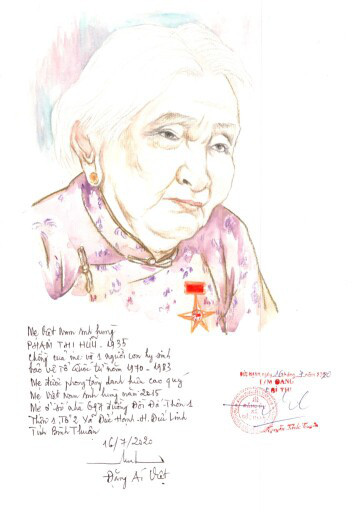 Mẹ Việt Nam Anh hùng
PHẠM THỊ HỮU - 1935
Chồng của mẹ và 1 người con hy sinh
bảo vệ Tổ Quốc từ năm 1970 - 1983
Mẹ được phong tặng danh hiệu cao quý
Mẹ Việt Nam Anh hùng năm 2015
Mẹ ở số nhà 697 đường Đôi Đá Thôn 1
Thôn 1, Tổ 2 Xã Đức Hạnh. H. Đức Linh
Tỉnh Bình Thuận
16/7/2020
Đặng Ái Việt
T/M ĐẢNG